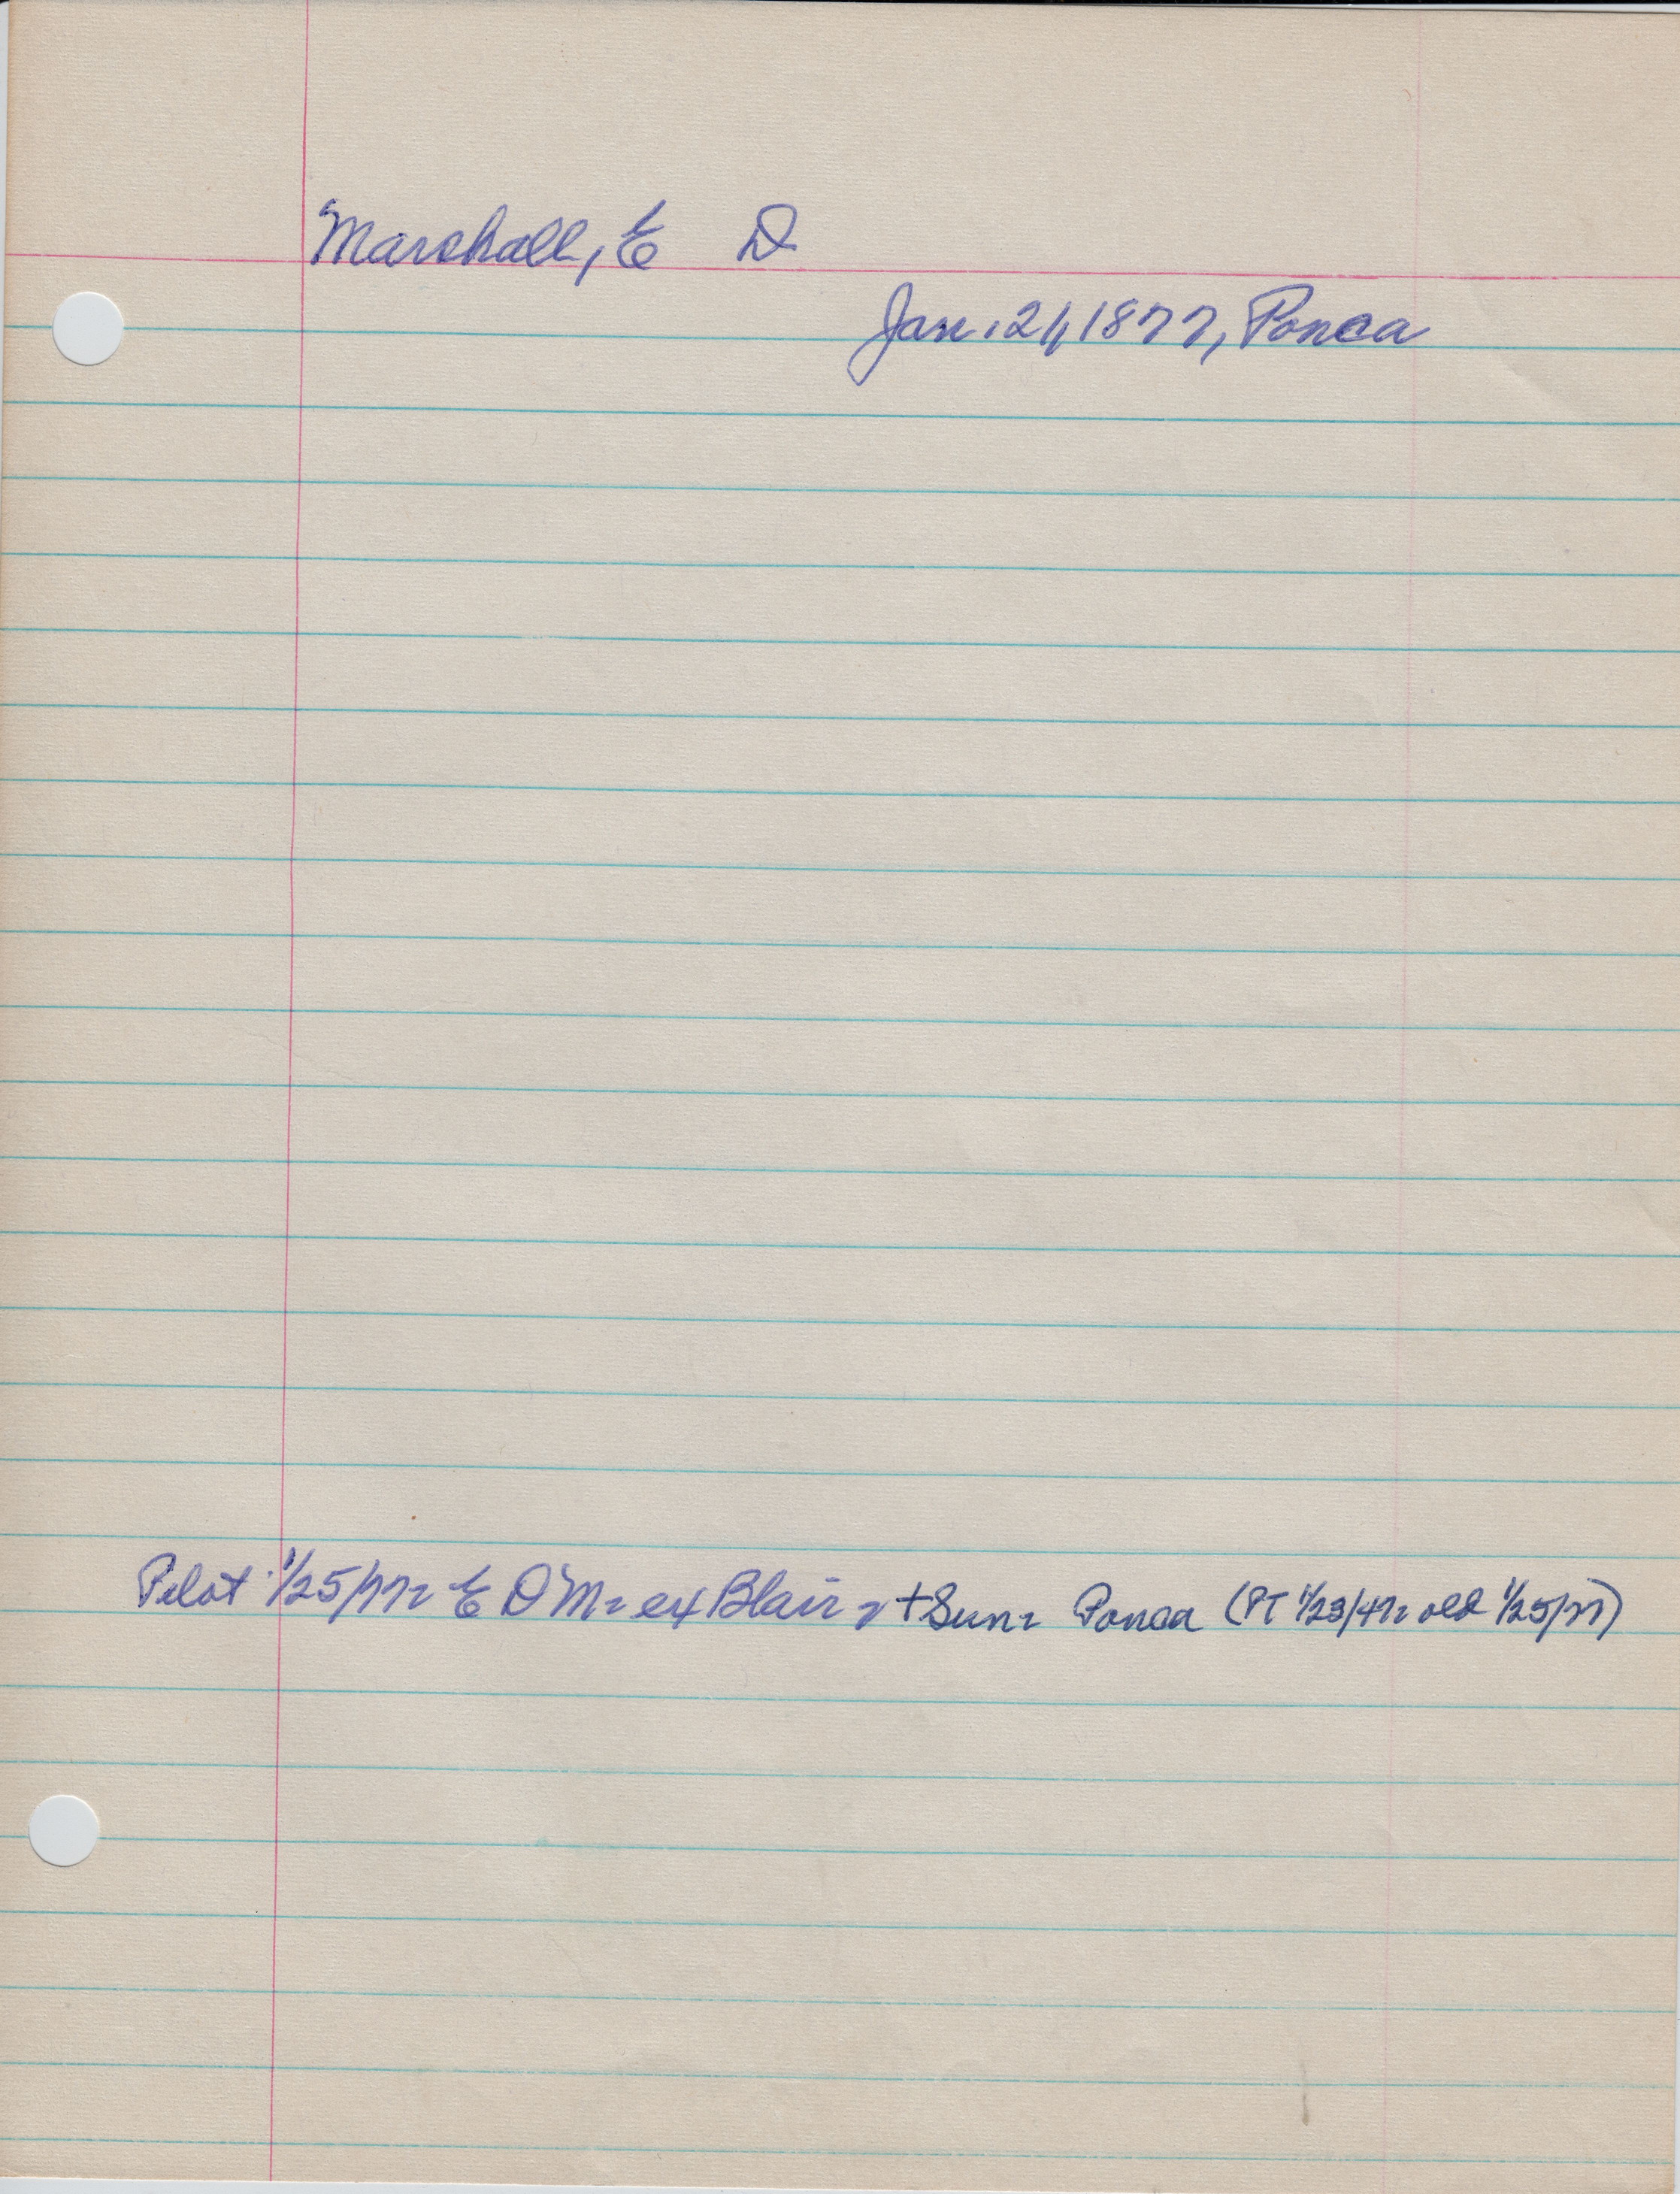 Marshall, E D
Jan. 21, 1877, Ponca
Pilot 1/25/77: E D M: ex Blair + Sun: Ponca (PT 1/23/47: old 1/25/77)